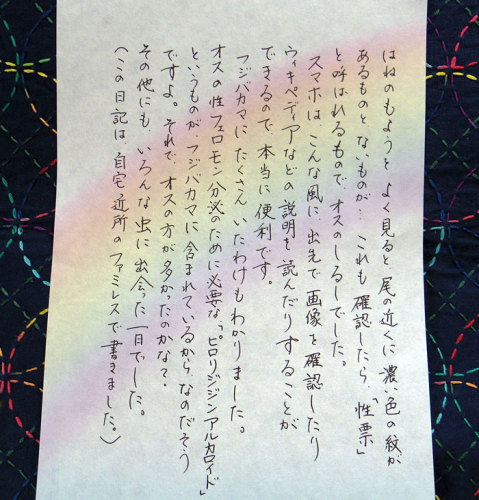 はねのもようと よく見ると 尾の近くに濃い色の紋が
あるものと ないものが… これも確認したら、「性票」
と呼ばれるもので、オスのしるしでした。
スマホは こんな風に、出先で 画像を確認したり
ウィキペディアなどの説明を 読んだりすることが
できるので、本当に便利です。
フジバカマに たくさん いたわけも わかりました。
オスの性フェロモン分泌のために必要な「ピロリジジンアルカロイド」
というものが、フジバカマに含まれているから、なのだそう
ですよ。それで、オスの方が多かったのかな?
その他にも いろんな虫に出会った一日でした。
(この日記は 自宅近所のファミレスで書きました。)